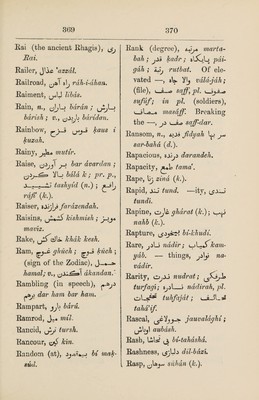 369
Rai (the ancient Rhagis), ری
Rai.
Railer, عذّال 'azzál.
Railroad, راه آهن ráh-i-áhan.
Raiment, لباس libás.
Rain, n., باران bárán ; بارش
bárish ; v., باریدن bárídan.
Rainbow, قوس قزح ḳaus i
ḳuzaḥ.
Rainy, مطیر muṭír.
Raise, بر آوردن bar ávardan ;
بالا کردن bálá k ; pr. p.,
تشیید tashyíd (n.) ; رافع
ráfi' (k.).
Raiser, فرازنده farázendah.
Raisins, کشمش kishmish ; مویز
maviz.
Rake, خاک کش khák kesh.
Ram, قوچ ghúch ; قوچ ḳúch ;
(sign of the Zodiac), حمل
ḥamal ; v., آهاندن áhandan.
Rambling (in speech), درهم
برهم dar ham bar ham.
Rampart, بارو bárú.
Ramrod, میل mil.
Rancid, ترش tursh.
Rancour, کین kin.
Random (at), بی مقصود bí maḳ-
ṣúd.
370
Rank (degree), مرتبه marta-
bah ; قدر ḳadr ; پایگاه pái-
gáh ; رتبة rutbat. Of ele-
vated —, والا جاه válá-jáh ;
(file), صف ṣaff, pl. صفوف
ṣufúf ; in pl. (soldiers),
مصاف maṣáff. Breaking
the —, صف در ṣaff-dar.
Ransom, n., فدیه fidyah سر بها
sar-bahá (d.).
Rapacious, درنده darandeh.
Rapacity, طمع ṭama'.
Rape, زنا ziná (k.).
Rapid, تند tund. —ity, تندی
tundí.
Rapine, غارت ghárat (k.) ; نهب
nahb (k.).
Rapture, بیخودی bí-khudí.
Rare, نادر nádir ; کمیاب kam-
yáb. — things, نوادر na-
vádir.
Rarity, ندرت nudrat ; طرفگی
ṭurfagí ; نادره nádirah, pl.
تحفجات tuḥfaját ; تحایف
taḥá'if.
Rascal, جوالغی jauvalághí ;
اوباش aubásh.
Rash, بی تحاشا bí-taḥáshá.
Rashness, دلبازی dil-bází.
Rasp, سوهان súhán (k.).